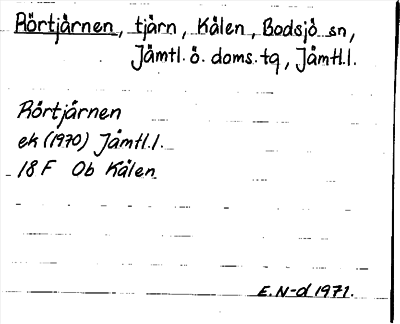 Rörtjärnen, tjärn, Kälen, Bodsjö sn,
Jämtl. ö. doms. tg, Jämtl. l.
Rörtjärnen
ek (1970) Jämtl. l.
18 F Ob Kälen
E. N-d 1971.